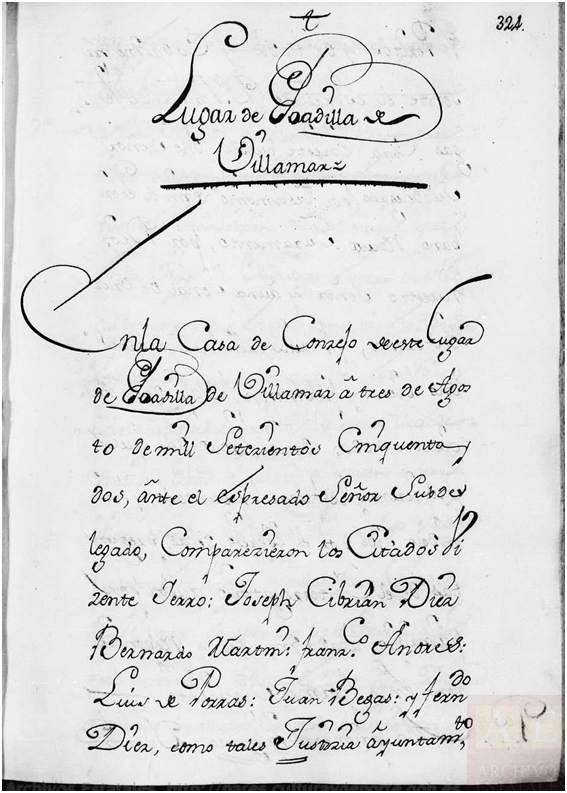 324.
Lugar de Boadilla de
Villamar
Enla Casa de Conzejo de este Lugar
de Boadilla de Villamar â tres de Agos
to de mill Setezientos Cinquenta y
dos, ânte el expresado Señor Subde
legado, Comparezieron los Citados Bi
zente Ferro: Joseph Cibrian Diez
Bernardo Martin: franz.co Andres:
Luis de Porras: Juan Begas: y fern.do
Diez, como tales Justizia âyuntam.to
ARCHIVO